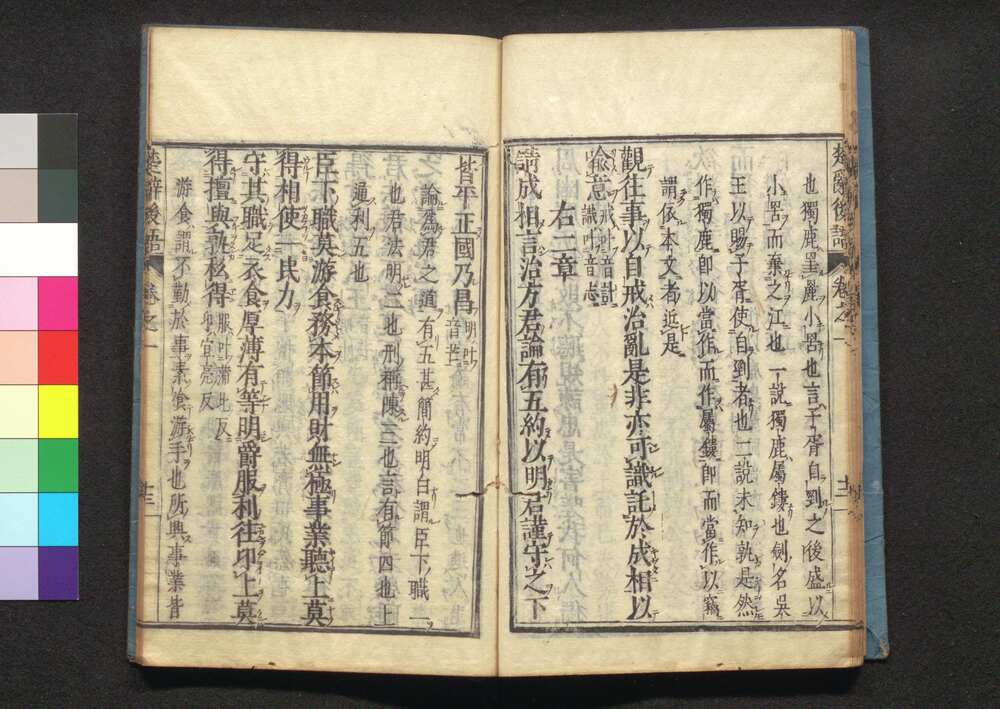 楚辭後語 卷之一 十二
也獨鹿罣麗小罟也言子胥自剄之後盛以
小罟而棄之江也一說獨鹿屬鏤也劍名吳
王以賜子胥使自剄者也二說未知孰是然
作獨鹿卽以當作而作屬鏤卽而當作以竊
謂依本文者近是
觀往事以自戒治亂是非亦可識託於成相以
喻意戒叶音計識叶音志
右二章
請成相言治方君論有五約以明君謹守之下
皆平正國乃昌明叶音芒
論爲君之道有五甚簡約明白謂臣下職一
也君法明二也刑稱陳三也言有節四也上
通利五也
臣下職莫游食務本節用財無極事業聽上莫
得相使一民力
守其職足衣食厚薄有等明爵服利往卬上莫
得擅與孰私得服叶蒲北反卬宜亮反
游食謂不勤於事素食游手也所興事業皆
楚辭後語 卷之一